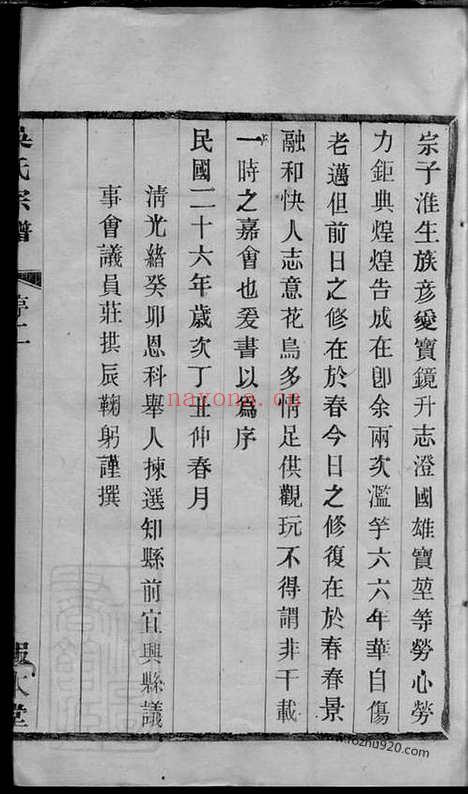 宗子淮生族彥愛寶鏡升志澄國雄寶堃等勞心勞
力鉅典煌煌告成在卽余兩次濫竽六六年華自傷
老邁但前日之修在於春今日之修復在於春春景
融和快人志意花鳥多情足供觀玩不得謂非千載
一時之嘉會也爰書以爲序
民國二十六年歲次丁丑仲春月
清光緒癸卯恩科舉人揀選知縣前宜興縣議
事會議員莊拱辰鞠躬謹撰
吳氏宗譜 序二 堂
nayong.cn
www.fozhu920.com